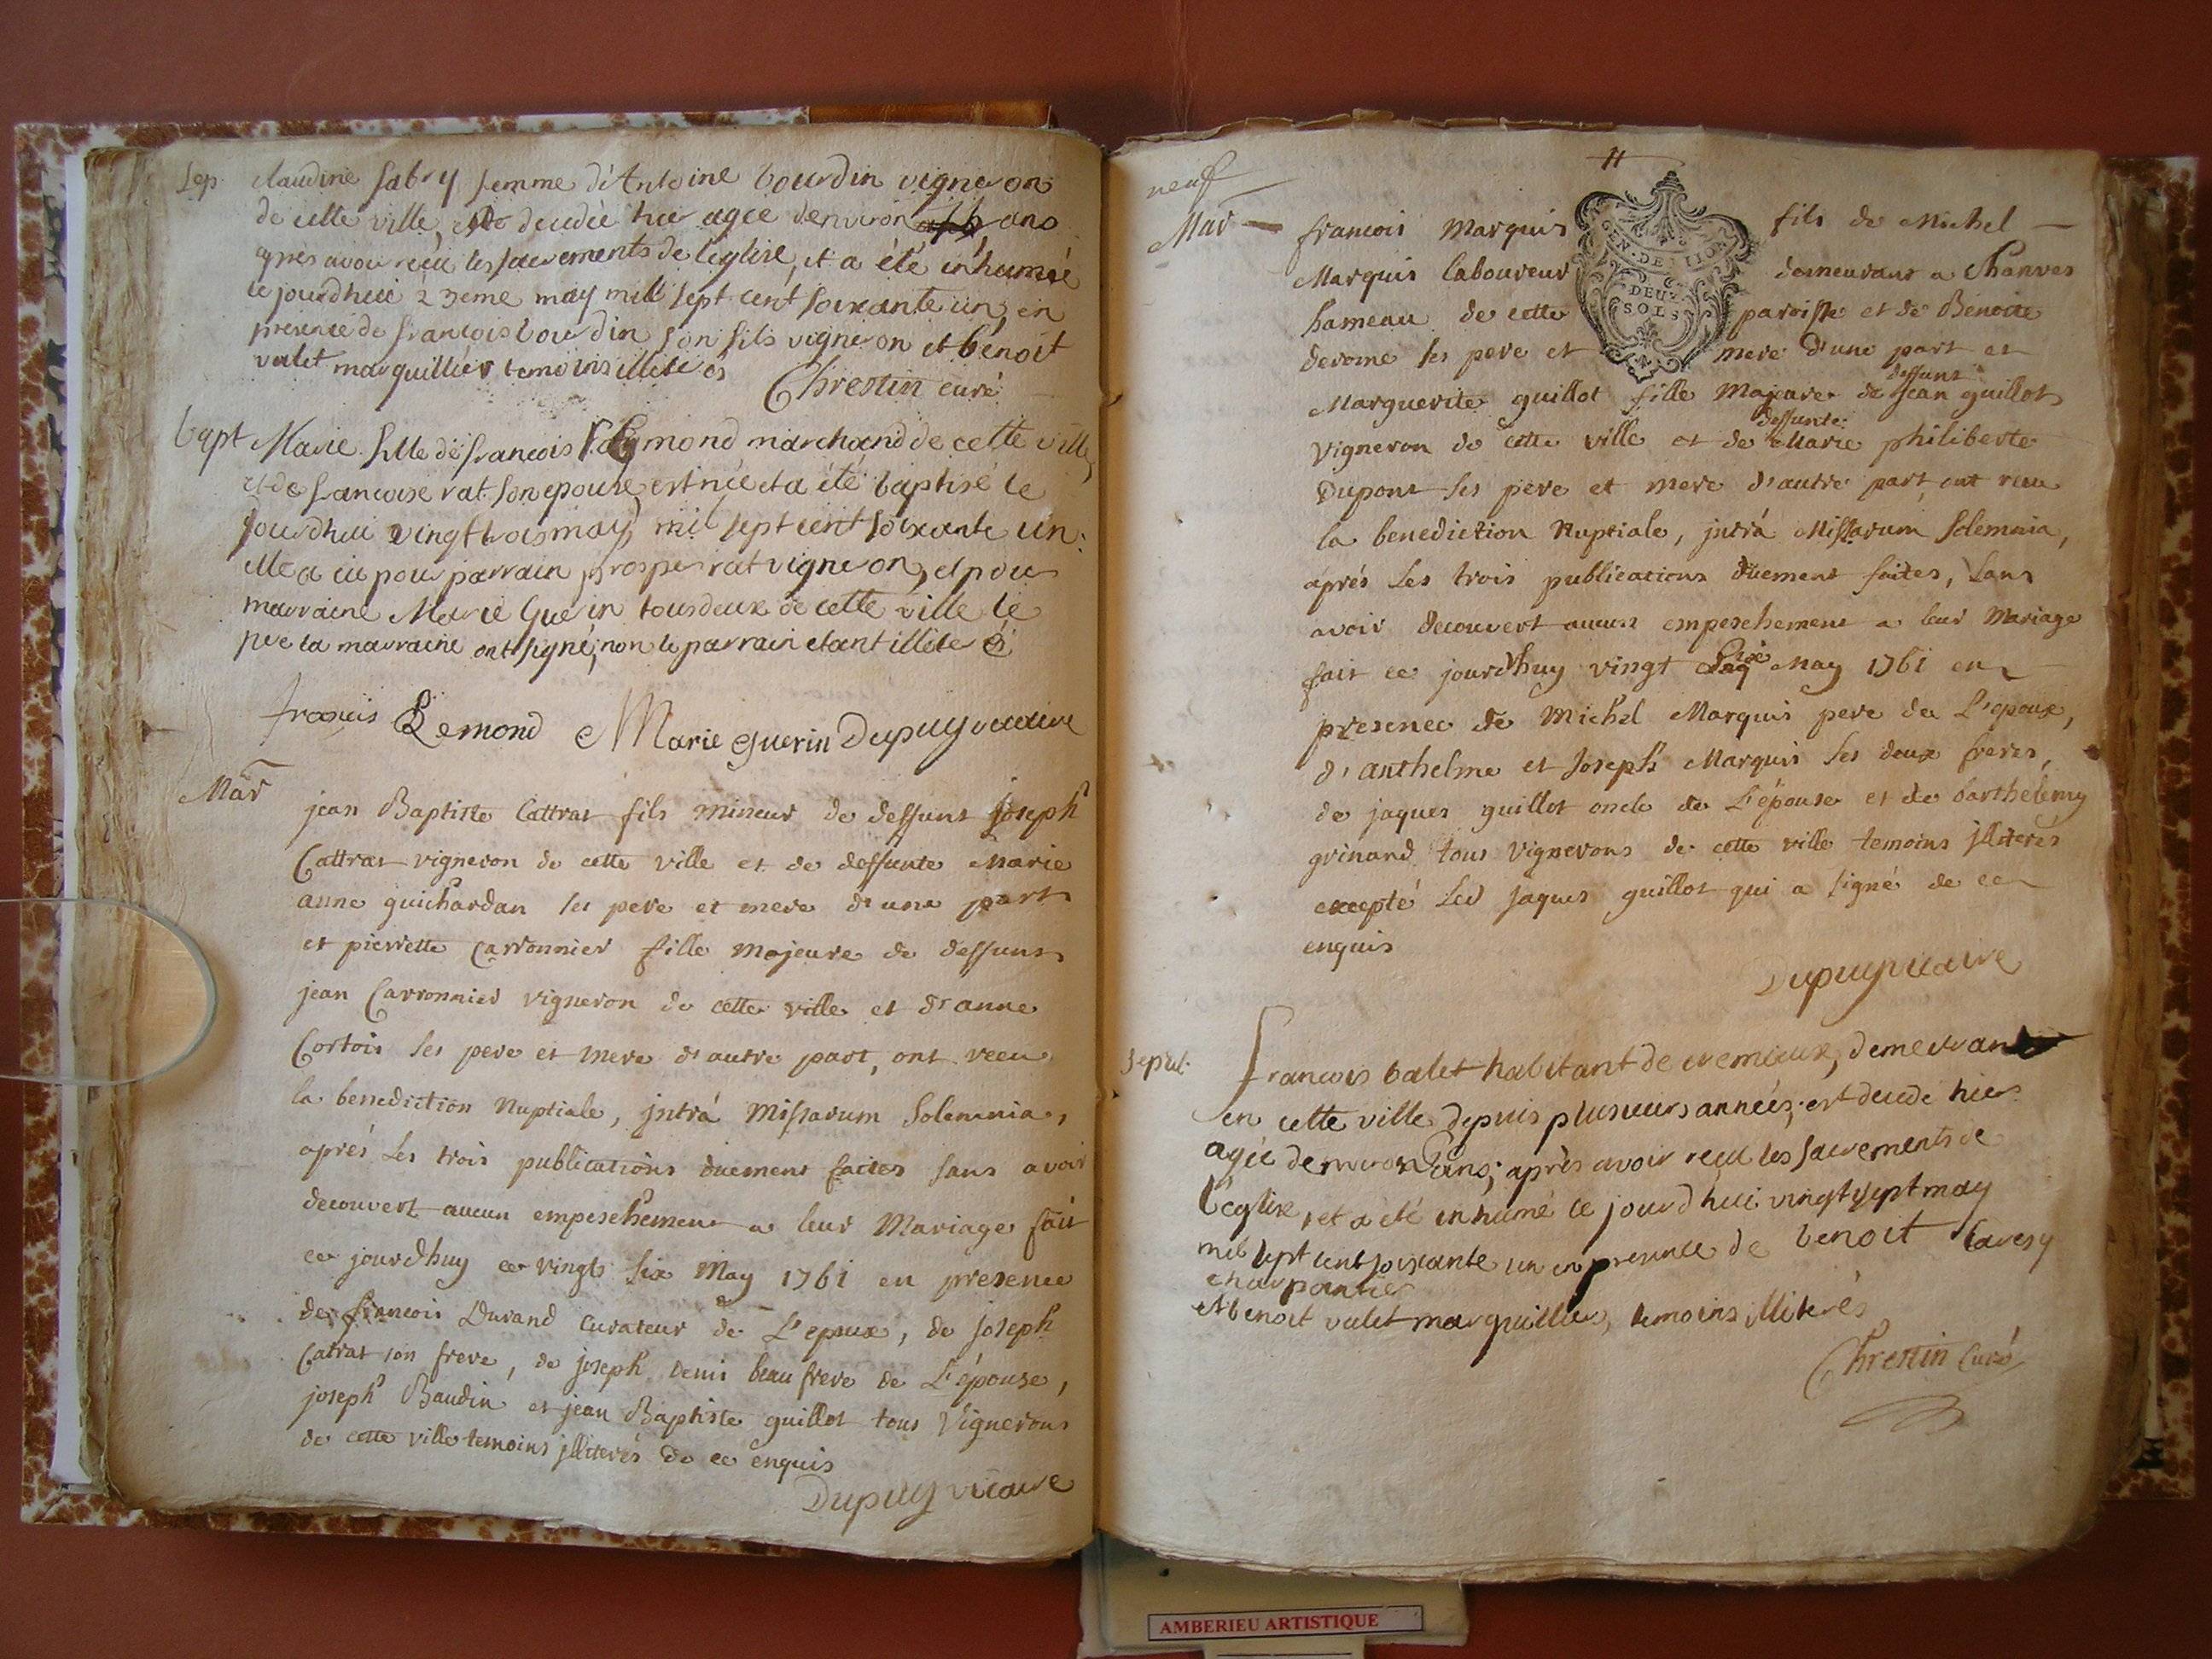 Sep. claudine fabry femme d'Antoine bourdin vigneron
de cette ville, decedée hier agée denviron ans
après avoir reçu les sacrements de l'eglise, et a été inhumée
ce jourdhui 23eme may mill sept cent soixante un en
presence de françois bourdin son fils vigneron et benoit
valet marguillier temoins illiterés
Chrestin curé
bapt Marie fille de françois mond marchand de cette ville
et de francoise rat son epouse est née et a été baptisé ce
jourdhui vingt trois may, mil sept cent soixante un.
elle a eu pour parrain, prosper rat vigneron, et pour
marraine Marie Guerin tous deux de cette ville le
pere la marraine ont signé, non le parrain etant illiteré
françois Lemond Marie guerin Dupuy vicaire
Mar
jean Baptiste Cattrat fils mineur de deffunt Joseph
Cattrat vigneron de cette ville et de deffunte Marie
anne guichardan ses pere et mere d'une part
et pierrette Carronnier fille Majeure de deffunt
jean Carronnier vigneron de cette ville et d'anne
Cortois ses pere et mere d'autre part, ont reeu
la benediction Nuptiale, jntrá Missarum Solemnia,
aprés les trois publications düement faites sans avoir
decouvert aucun empeschement a leur Mariage fait
ce jourdhuy ce vingt six May 1761 en presence
de françois Durand curateur de L'epoux, de joseph
Catrat son frere, de joseph denis beau frere de L'épouse,
joseph Baudin et jean Baptiste guillot tous Vignerons
de cette ville temoins jlliterés de ce enquis
Dupuy vicaire
11
neuf
GEN. DE DIJON
DEUX
SOLS
Mar francois Marquis fils de Michel
Marquis laboureur demeurant a Chanves
hameau de cette paroisse et de Benoite
derome ses pere et mere d'une part et
deffunt
Marguerite guillot fille Majeure de jean guillot
deffunte
Vigneron de cette ville et de Marie philiberte
Dupont ses pere et mere d'autre part, ont reeu
la benediction Nuptiale, jntrá Missarum Solemnia,
aprés les trois publications düement faites, sans
avoir decouvert aucun empeschement a leur Mariage
fait ce jourdhuy vingt six May 1761 en
presence de Michel Marquis pere de L'epoux,
d'anthelme et Joseph Marquis ses deux freres,
de jaques guillot oncle de L'épouse et de barthelemy
grinand tous Vignerons de cette ville temoins jlliterés
excepté Led jaques guillot qui a signé de ce
enquis
Dupuy vicaire
Sepul. francois balet habitant de cremieux, demeurant
en cette ville depuis plusieurs années, est decedé hier
agée denviron ans; après avoir reçu les sacrements de
l'église, et a été inhumé ce jourdhui vingt sept may
mil sept cent soixante un en presence de benoit Savesy
charpantier
et benoit valet marguillier, temoins illiterés
Chrestin Curé
AMBERIEU ARTISTIQUE